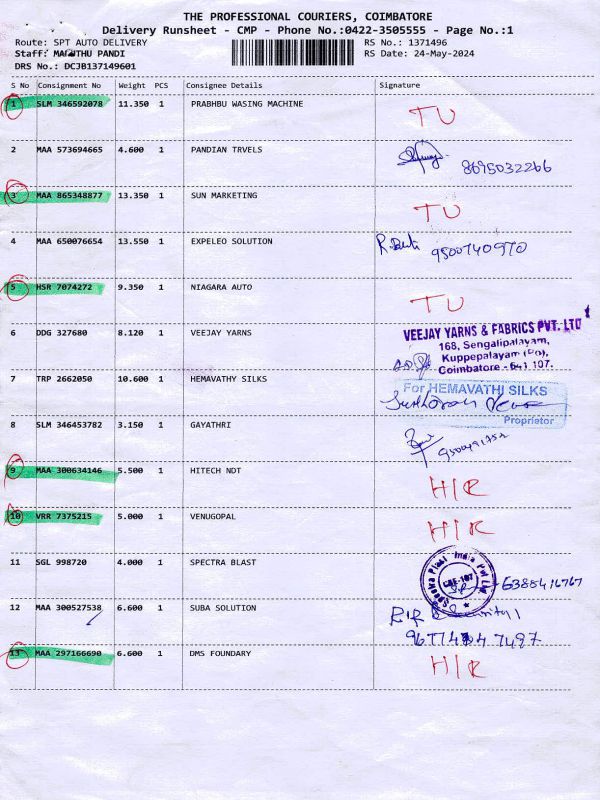 THE PROFESSIONAL COURIERS, COIMBATORE
Delivery Runsheet - CMP - Phone No.:0422-3505555 - Page No.:1
Route: SPT AUTO DELIVERY RS No.: 1371496
Staff: MARUTHU PANDI RS Date: 24-May-2024
DRS No.: DCJB137149601
S No Consignment No Weight PCS Consignee Details Signature
1 SLM 346592078 11.350 1 PRABHBU WASING MACHINE TU
2 MAA 573694665 4.600 1 PANDIAN TRVELS 8695032266
3 MAA 865348877 13.350 1 SUN MARKETING TU
4 MAA 650076654 13.550 1 EXPELEO SOLUTION 9500740970
5 HSR 7074272 9.350 1 NIAGARA AUTO TU
6 DDG 327680 8.120 1 VEEJAY YARNS VEEJAY YARNS & FABRICS PVT. LTD
168, Sengalipalayam,
Kuppepalayam (Po),
Coimbatore - 641 107.
7 TRP 2662050 10.600 1 HEMAVATHY SILKS For HEMAVATHI SILKS
Proprietor
8 SLM 346453782 3.150 1 GAYATHRI
9 MAA 300634146 5.500 1 HITECH NDT H/R
10 VRR 7375215 5.000 1 VENUGOPAL H/R
11 SGL 998720 4.000 1 SPECTRA BLAST Spectra Plast India Pvt Ltd CBE-107 6385416767
12 MAA 300527538 6.600 1 SUBA SOLUTION
13 MAA 297166690 6.600 1 DMS FOUNDARY H/R